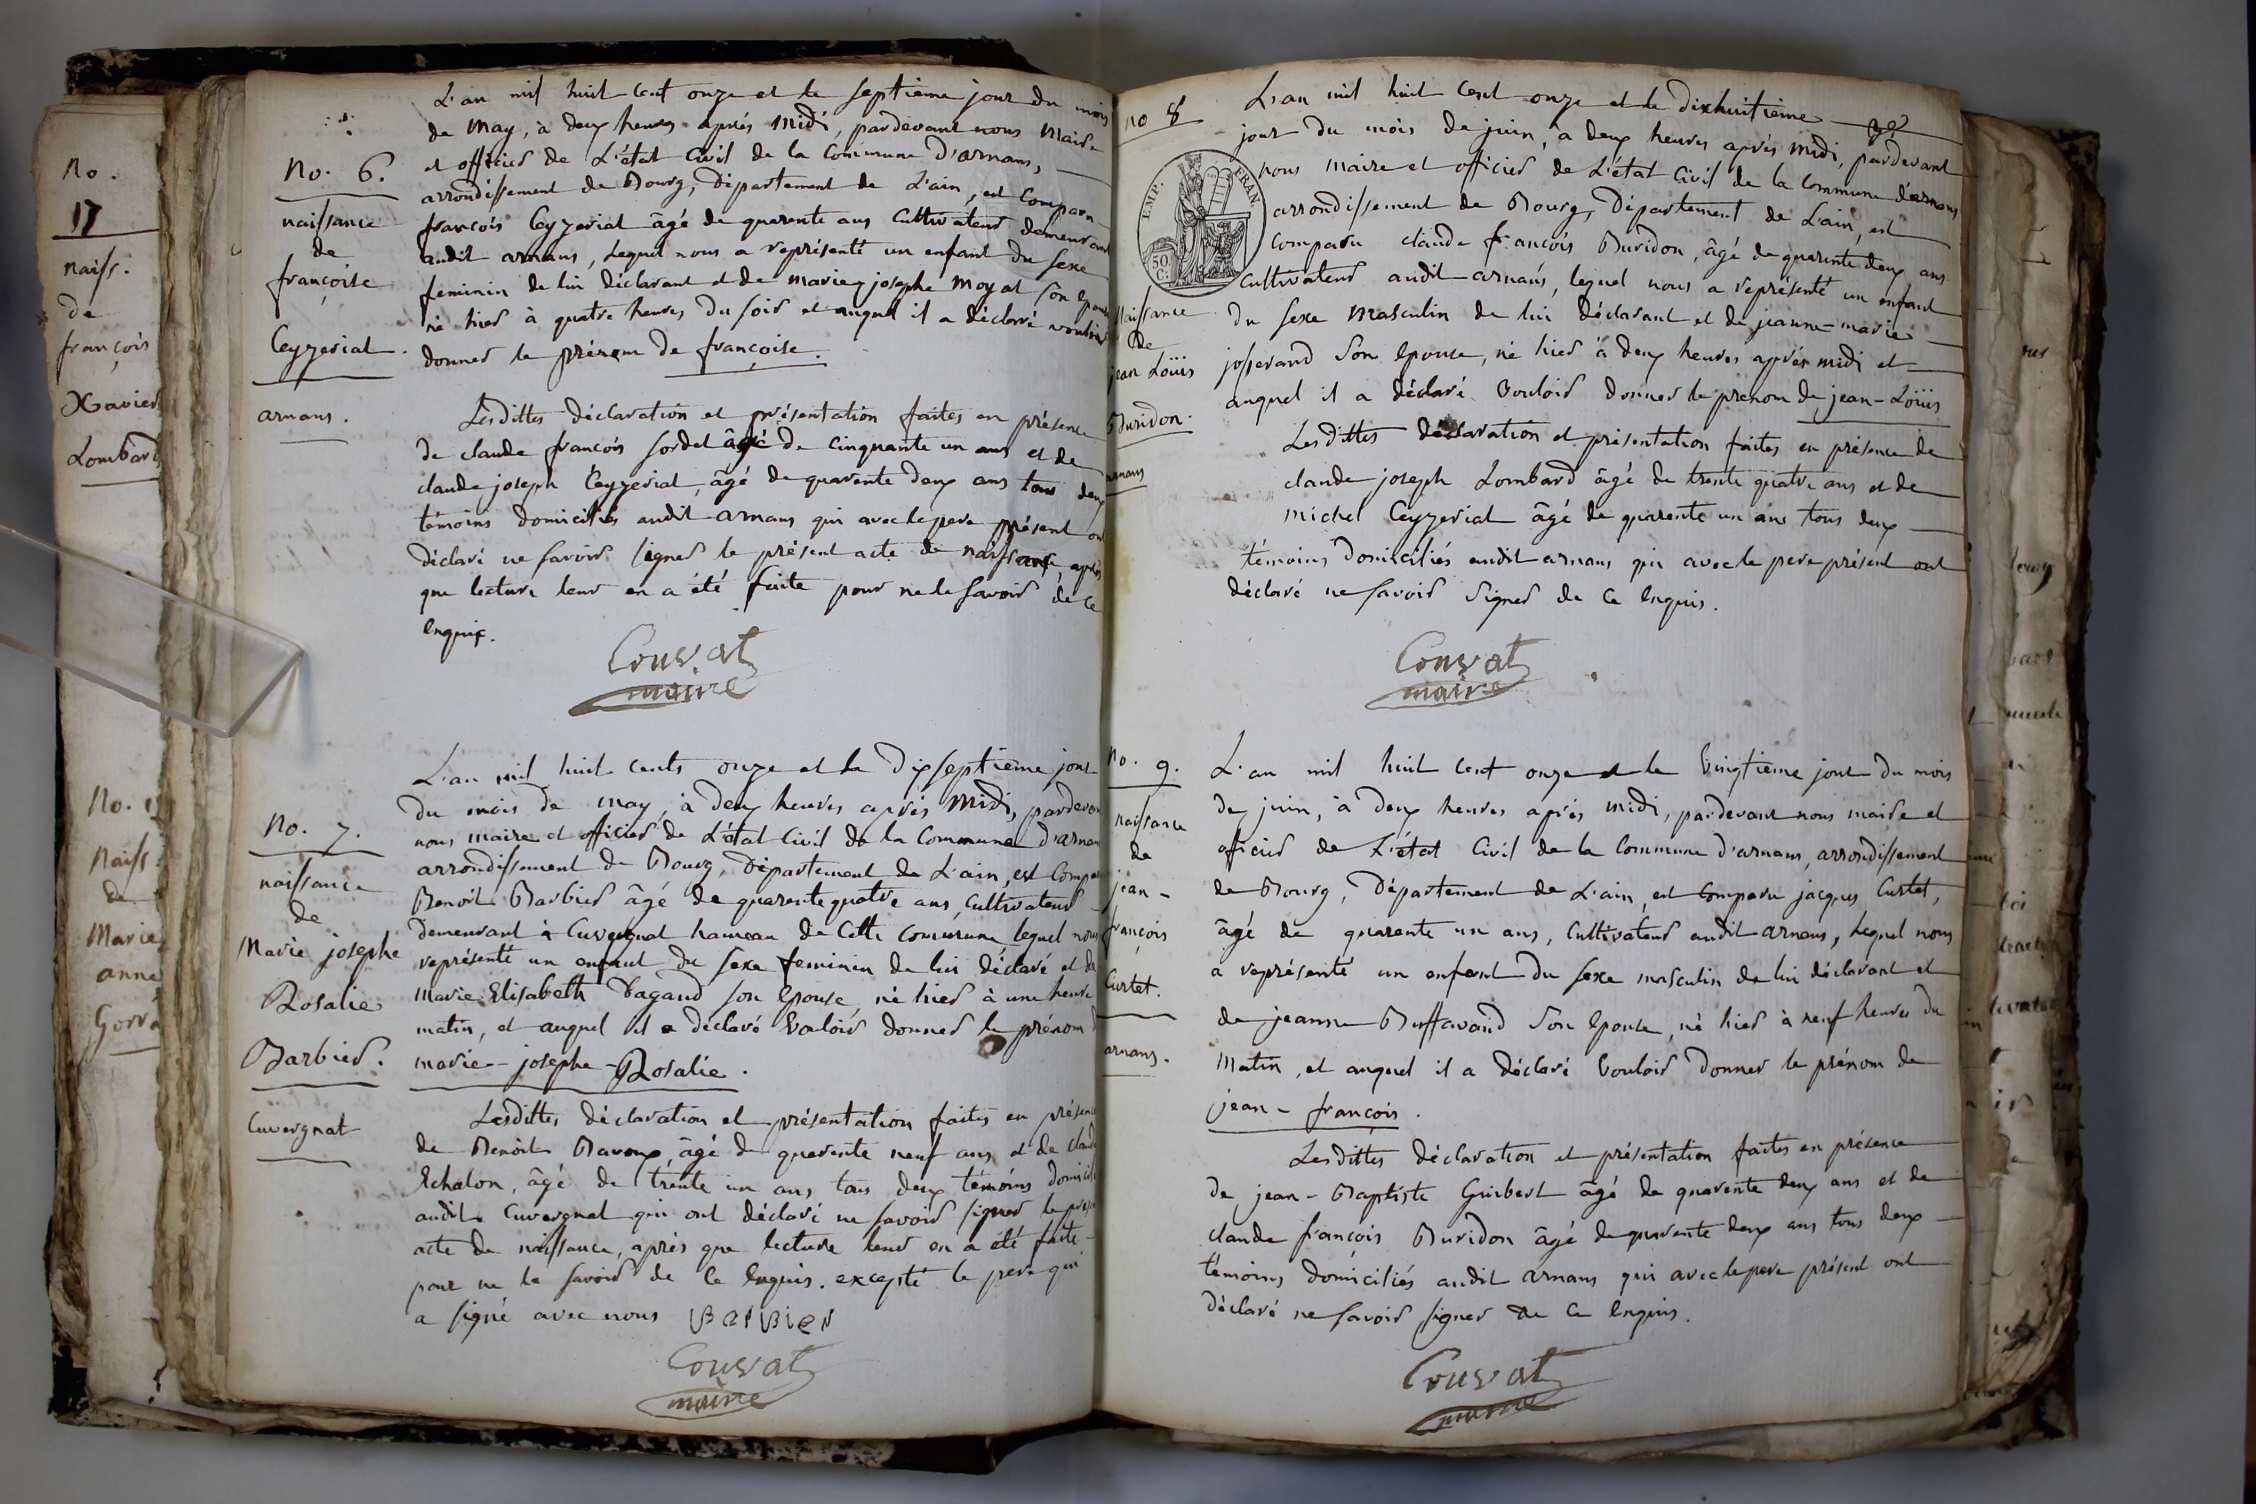 No.
17
naiss.
de
françois
Xavier
Lombard
Naiss.
de
Marie
anne
No. 6.
naissance
de
françoise
Ceyzeriat.
arnans.
L'an mil huit cent onze et le septieme jour du mois
de May, à deux heures aprés midi, pardevant nous Maire
et officier de L'état Civil de la Commune D'arnans,
arrondissement de Bourg, Département de L'ain, est Comparu
françois Ceyzeriat âgé de quarente ans Cultivateur demeurant
audit arnans, Lequel nous a représenté un enfant du sexe
feminin de lui déclarant et de marie josephe Moyat son épouse
né hier à quatre heures du soir et auquel il a déclaré vouloir
donner le prénom de françoise.
Lesdittes déclaration et présentation faites en présence
de claude françois sordet âgé de cinquante un ans et de
claude joseph Ceyzeriat, âgé de quarente deux ans tous deux
témoins domiciliés audit arnans qui avec le pere présent ont
déclaré ne savoir signer le présent acte de naissance, après
que lecture leur en a été faite pour ne le savoir de ce
enquis.
Couvat
maire
No. 7.
naissance
de
Marie josephe
Rosalie
Barbier.
Cuvergnat
L'an mil huit cents onze et le dixseptieme jour
du mois de may, à deux heures aprés Midi, pardevant
nous maire et officier de L'état Civil de la Commune D'arnans
arrondissement de Bourg, Département de L'ain, est Comparu
Benoit Barbier âgé de quarente quatre ans, Cultivateur
demeurant à Cuvergnat hameau de Cette Commune lequel nous
représenté un enfant du sexe feminin de lui déclaré et de
Marie Elisabeth Vagand son épouse né hier à une heure
matin, et auquel il a déclaré Vouloir donner le prénom
marie-josephe-Rosalie.
Lesdittes déclaration et présentation faites en présence
de Benoit Bavoux âgé de quarente neuf ans et de claude
Echalon, âgé de trente un ans tous deux témoins domiciliés
audit Cuvergnat qui ont déclaré ne savoir signer le présent
acte de naissance, après que lecture leur en a été faite
pour ne le savoir de ce enquis. excepté le pere qui
a signé avec nous Barbier
Couvat
maire
no 8
EMP. FRAN.
50 C.
naissance
de
jean Loüis
Buridon.
arnans
L'an mil huit cent onze et le dixhuitieme
jour du mois de juin, à deux heures aprés midi, pardevant
nous maire et officier de L'état Civil de la Commune d'arnans
arrondissement de Bourg, Département de L'ain, est
Comparu claude françois Buridon, âgé de quarente deux ans
Cultivateur audit arnans, lequel nous a représenté un enfant
du sexe Masculin de lui déclarant et de jeanne-marie
josserand son épouse, né hier à deux heures aprés midi et
auquel il a déclaré Vouloir donner le prenom de jean-Loüis
Lesdittes déclaration et présentation faites en présence de
claude joseph Lombard âgé de trente quatre ans et de
Michel Ceyzeriat âgé de quarente un ans tous deux
témoins domiciliés audit arnans qui avec le pere présent ont
déclaré ne savoir signer de ce enquis.
Couvat
maire
no. 9.
naissance
de
jean-
françois
Curtet.
arnans.
L'an mil huit cent onze et le Vingtieme jour du mois
de juin, à deux heures aprés midi, pardevant nous maire et
oficier de L'état Civil de la Commune D'arnans, arrondissement
de Bourg, Département de L'ain, est Comparu jacques Curtet,
âgé de quarente un ans, Cultivateur audit arnans, Lequel nous
a représenté un enfant du sexe masculin de lui déclarant et
de jeanne Buffavand son épouse, né hier à neuf heures du
Matin, et auquel il a déclaré Vouloir donner le prénom de
jean-françois.
Lesdittes déclaration et présentation faites en présence
de jean-Baptiste Guibert âgé de quarente deux ans et de
claude françois Buridon âgé de quarente deux ans tous deux
témoins domiciliés audit arnans qui avec le pere présent ont
déclaré ne savoir signer de ce enquis.
Couvat
maire